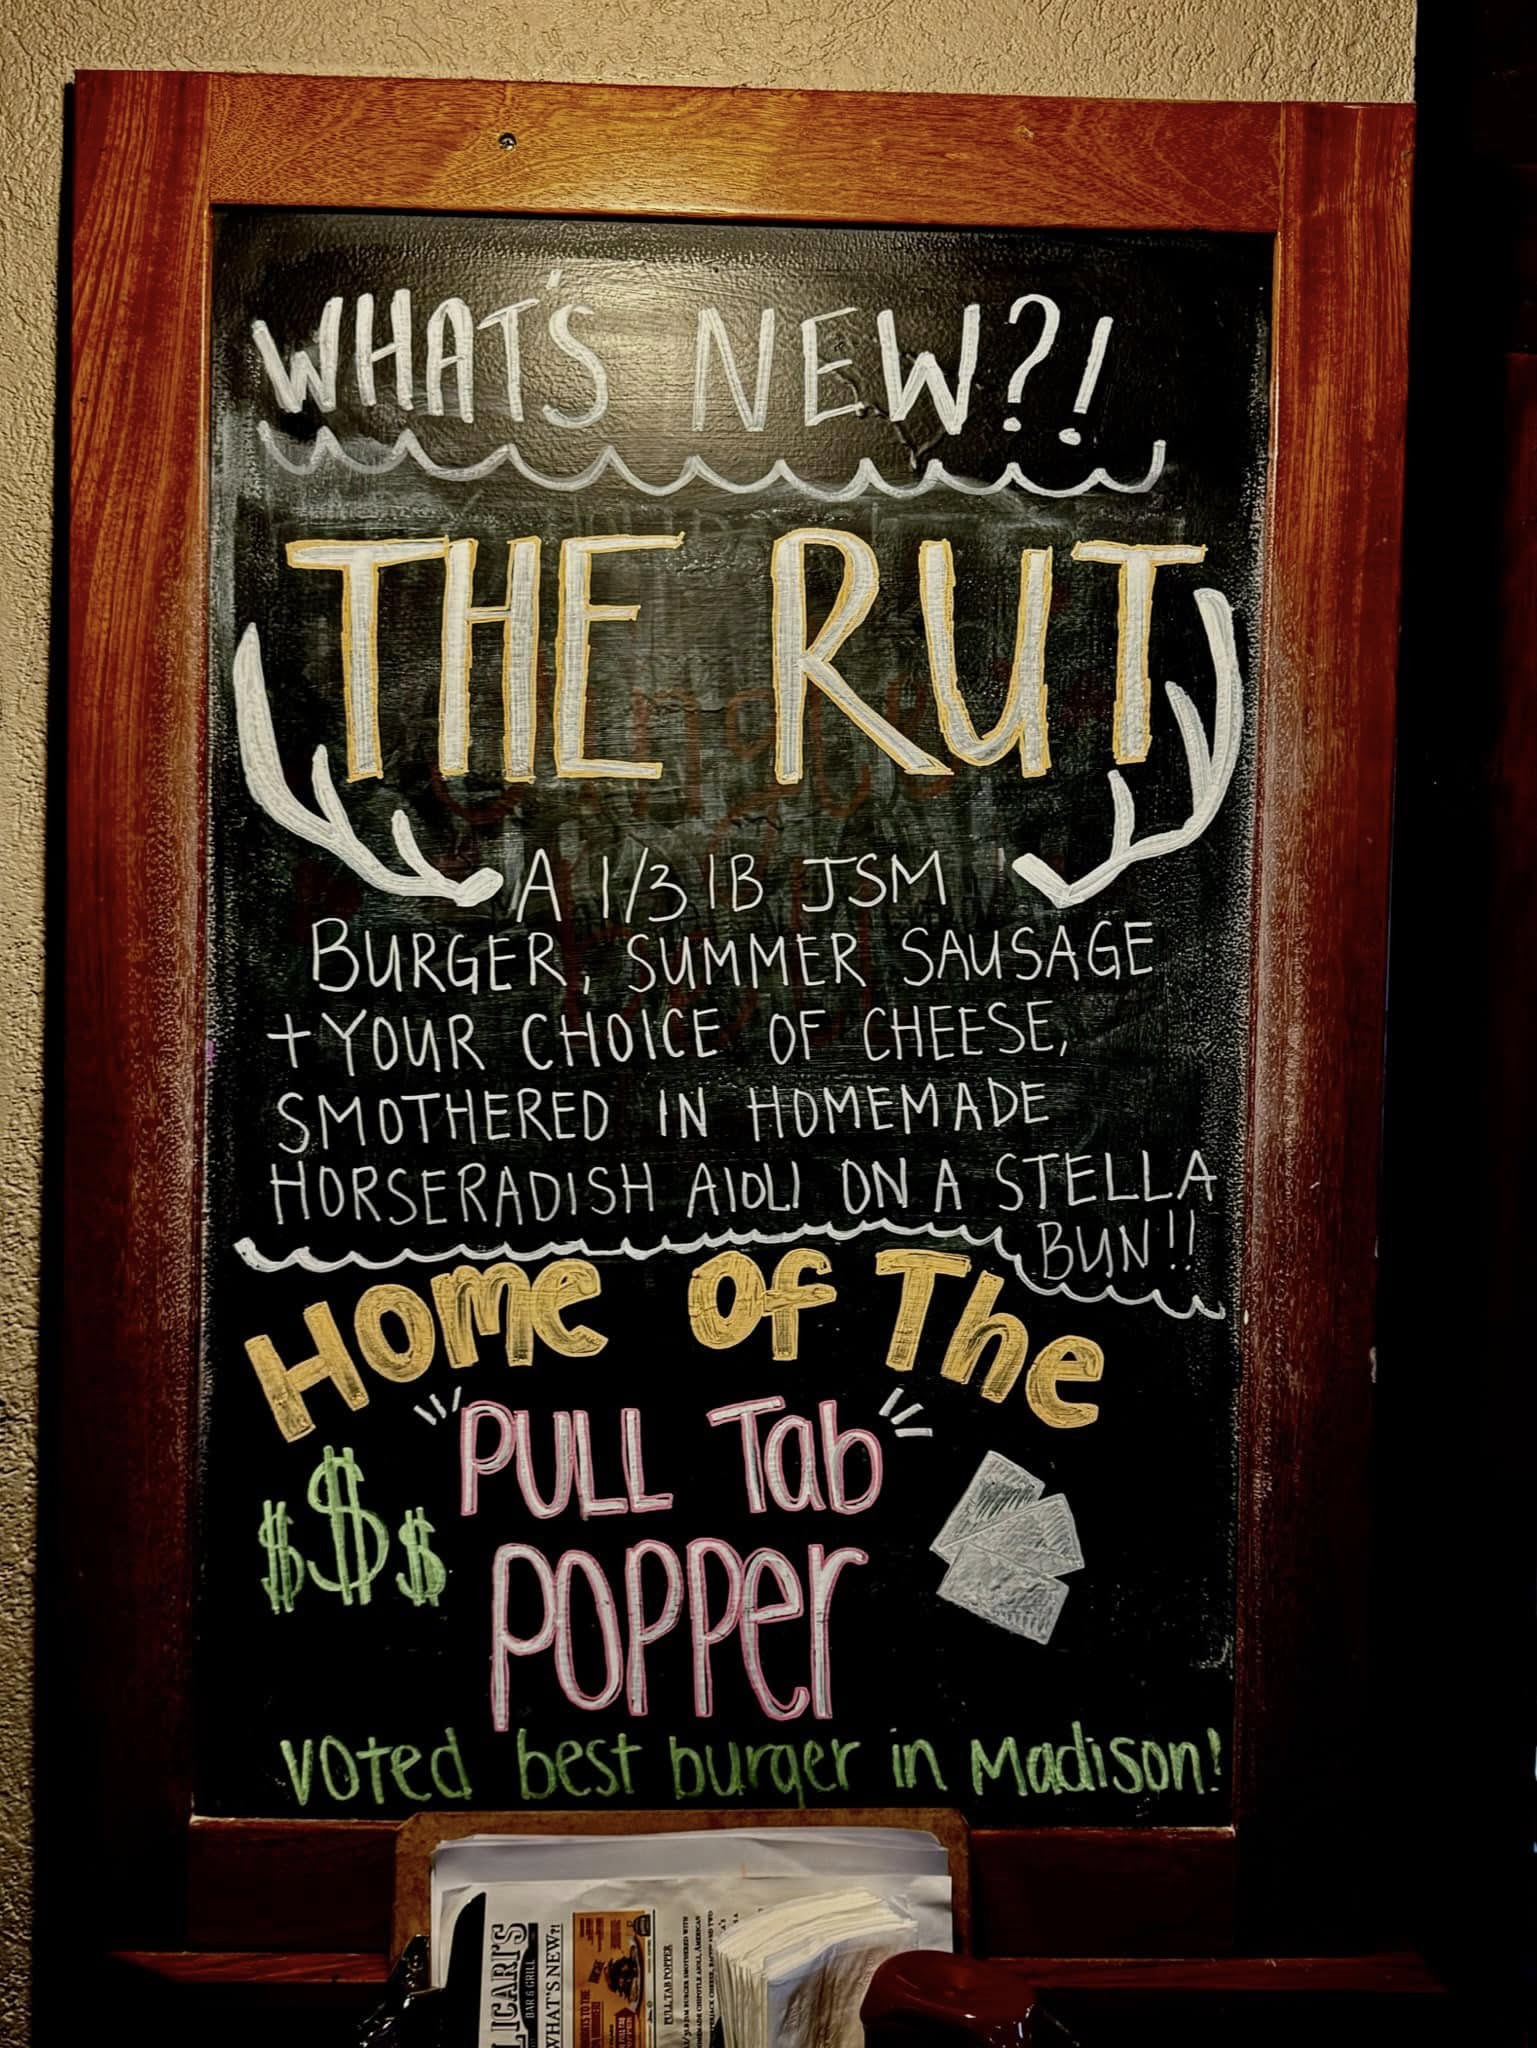 WHAT'S NEW?!
THE RUT
A 1/3 lB JSM
BURGER, SUMMER SAUSAGE
+ YOUR CHOICE OF CHEESE,
SMOTHERED IN HOMEMADE
HORSERADISH AIOLI ON A STELLA
BUN!!
HOME OF THE
"PULL Tab"
POPPer
Voted best burger in Madison!
LICARI'S
BAR & GRILL
WHAT'S NEW?!
PULL TAB POPPER
BURGER SMOTHERED WITH
CHIPOTLE AIOLI, AMERICAN
CHEESE, BACON AND TWO